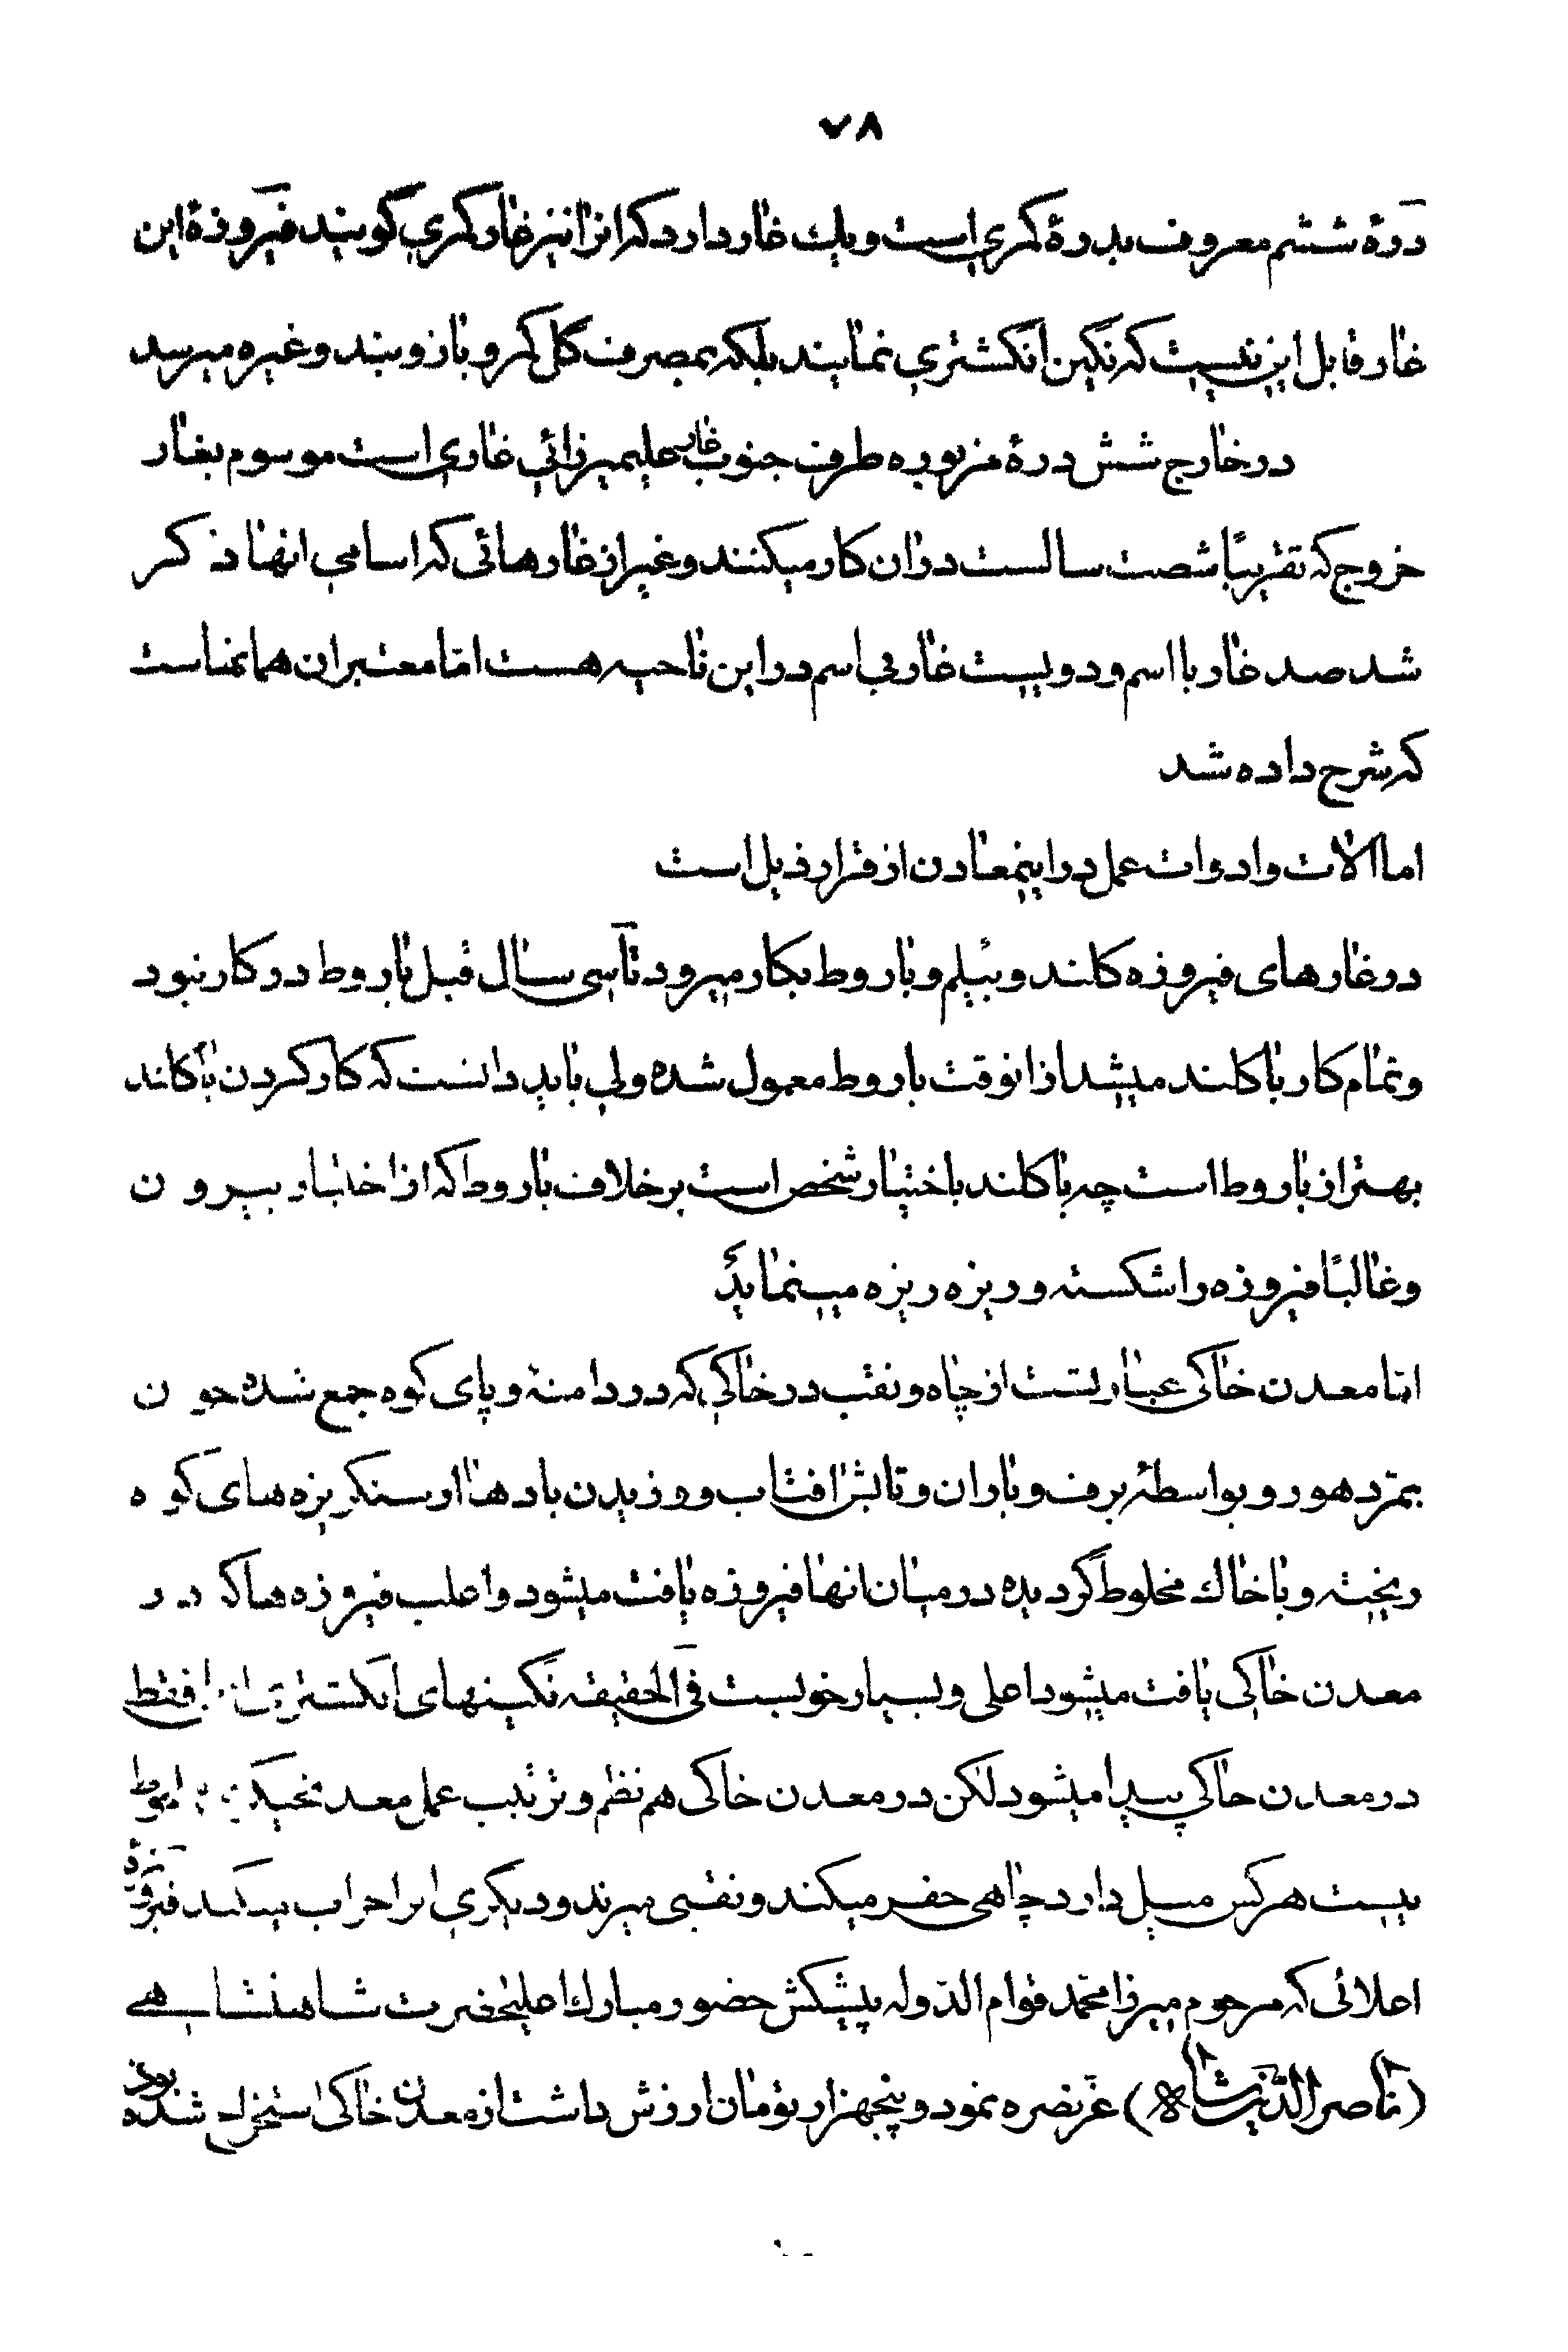 ۷۸
درهٔ ششم معروف بدرهٔ کمری است و یك غار دارد که انرا نیز غار کمری گویند فیروزهٔ این
غار قابل این نیست که نگین انگشتری نمایند بلکه بمصرف گل کمر و بازوبند و غیره میرسد
در خارج شش درهٔ مزبوره طرف جنوب غار علیمیرزائی غاری است موسوم بغار
خروج که تقریبًا شصت سالست دران کار میکنند و غیر از غارهائی که اسامی انها ذکر
شد صد غار با اسم و دویست غار بی اسم در این ناحیه هست امّا معتبران همانهاست
که شرح داده شد
اما الات و ادوات عمل در اینمعادن از قرار ذیل است
در غارهای فیروزه کلند و بیلم و باروط بکار میرود تا سی سال قبل باروط در کار نبود
و تمام کار با کلند میشد از انوقت باروط معمول شده ولی باید دانست که کار کردن با کلند
بهتر از باروط است چه با کلند باختیار شخص است برخلاف باروط که از اختیار بیرون
و غالبًا فیروزه را شکسته و ریزه ریزه مینماید
امّا معدن خاکی عبارتست از چاه و نقب در خاکی که در دامنهٔ و پای کوه جمع شده چون
بمرّ دهور و بواسطهٔ برف و باران و تابش افتاب و وزیدن بادها از سنگریزه های کوه
ریخته و با خاك مخلوط گردیده در میان انها فیروزه یافت میشود و اغلب فیروزه ها که در
معدن خاکی یافت میشود اعلی و بسیار خوبست فی الحقیقه نگینهای انگشتری فقط
در معدن خاکی پیدا میشود لکن در معدن خاکی هم نظم و ترتیب عمل معدنچیگری
نیست هرکس میل دارد چاهی حفر میکند و نقبی میزند و دیگری انرا خراب میکند فیروزهٔ
اعلائی که مرحوم میرزا محمّد قوام الدّوله پیشکش حضور مبارك اعلیحضرت شاهنشاهی
(ناصرالدّین شاه) عرضه نمود و پنجهزار تومان ارزش داشت از معدن خاکی استخراج شده بود